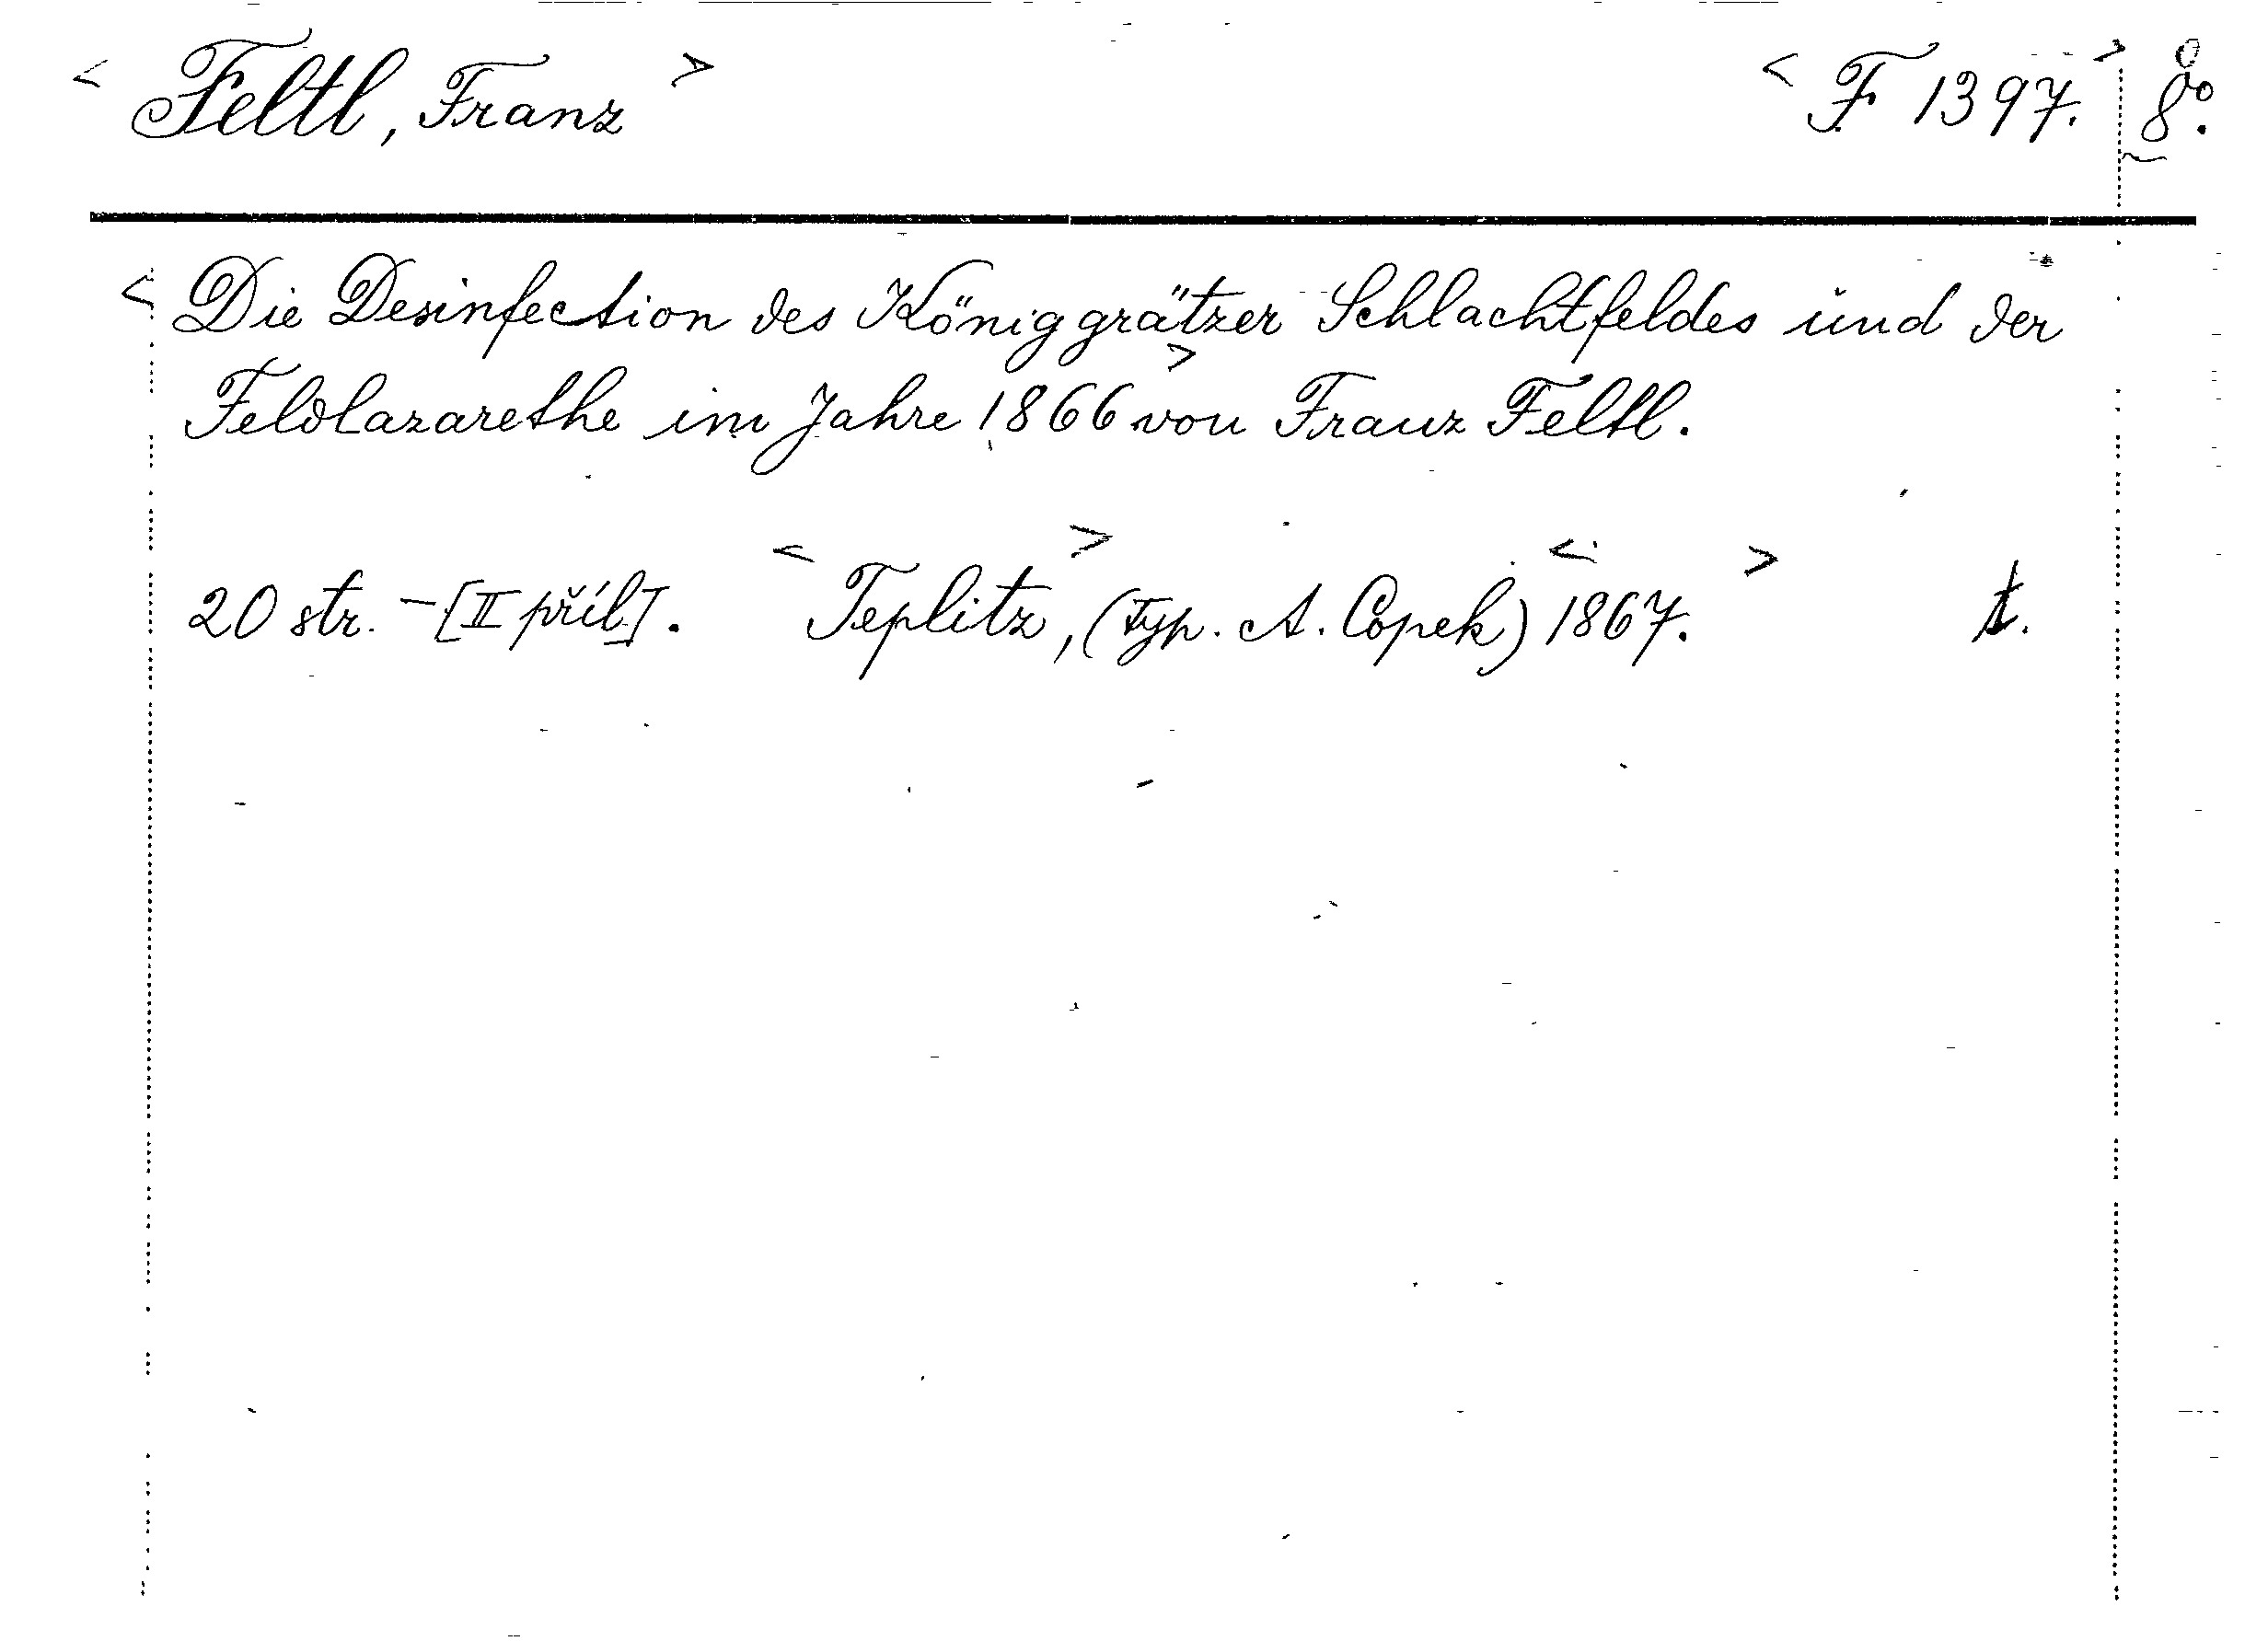 < Feltl, Franz > < F 1397. > 8º.
< Die Desinfection des Königgrätzer Schlachtfeldes und der
Feldlazarethe im Jahre 1866 > von Franz Feltl.
20 str. - [II příl]. < Teplitz, > (typ. A. Copek) < 1867. > t.